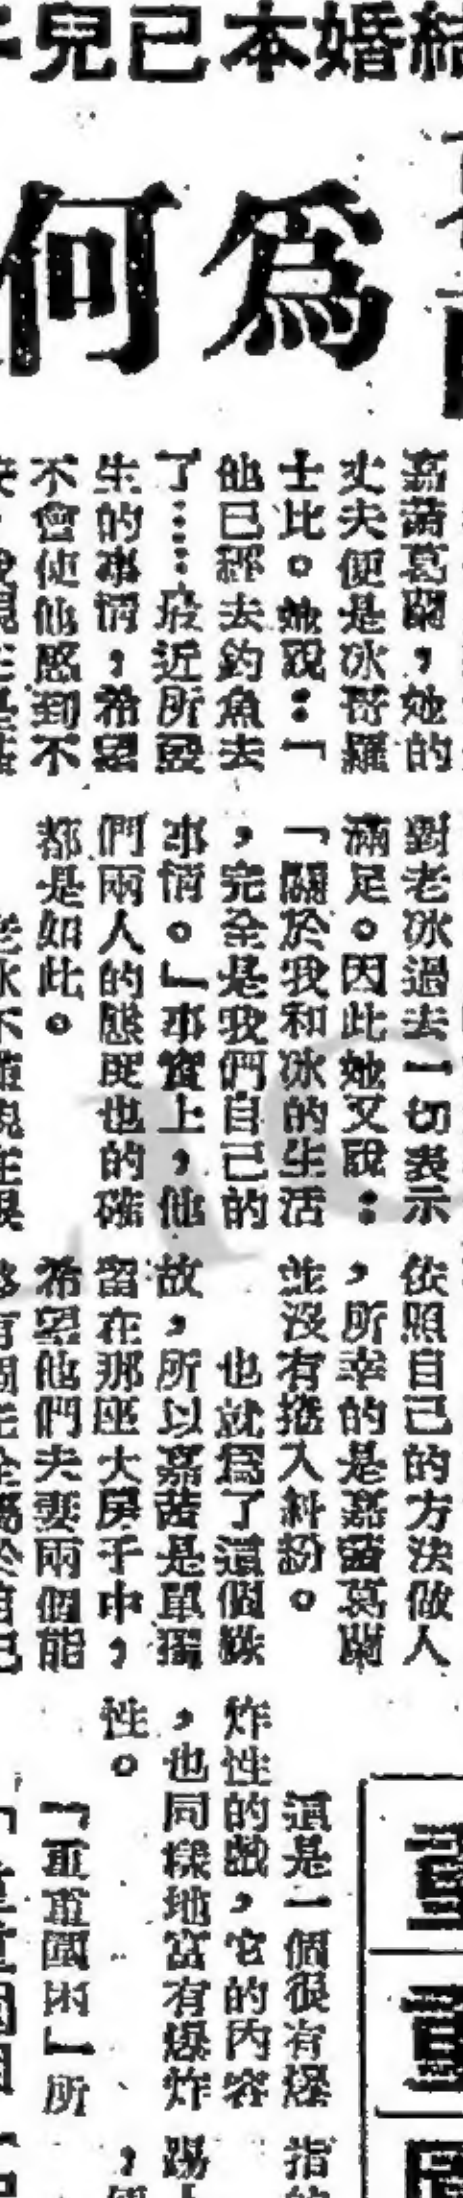 結婚本已兒
爲何
嘉茜葛蘭,她的
丈夫便是冰哥羅
士比。她說:「
他已經去釣魚去
了……最近所發
生的事情,希望
不會使他感到不
對老冰過去一切表示
滿足。因此她又說:
「關於我和冰的生活
,完全是我們自己的
事情。」事實上,他
們兩人的態度也的確
都是如此。
依照自己的方法做人
,所幸的是嘉茜葛蘭
並沒有捲入糾紛。
也就爲了這個緣
故,所以嘉茜是單獨
留在那座大房子中,
希望他們夫妻兩個能
重重
這是一個很有爆
炸性的戲,它的內容
,也同樣地富有爆炸
性。
「重重圍困」所